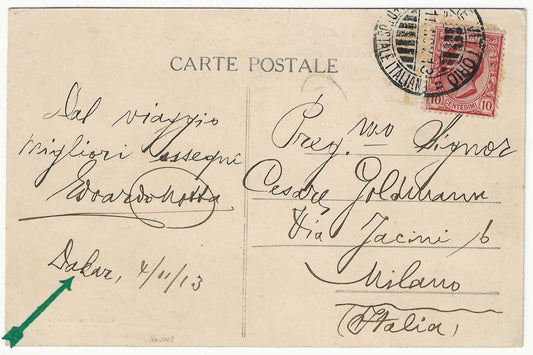 CARTE POSTALE
Dal viaggio
migliori ossequi
Edoardo
Dakar, 4/11/13
Preg.mo Signor
Cesare Goldmann
Via Jacini 6
Milano
(Italia)
10 CENTESIMI 10